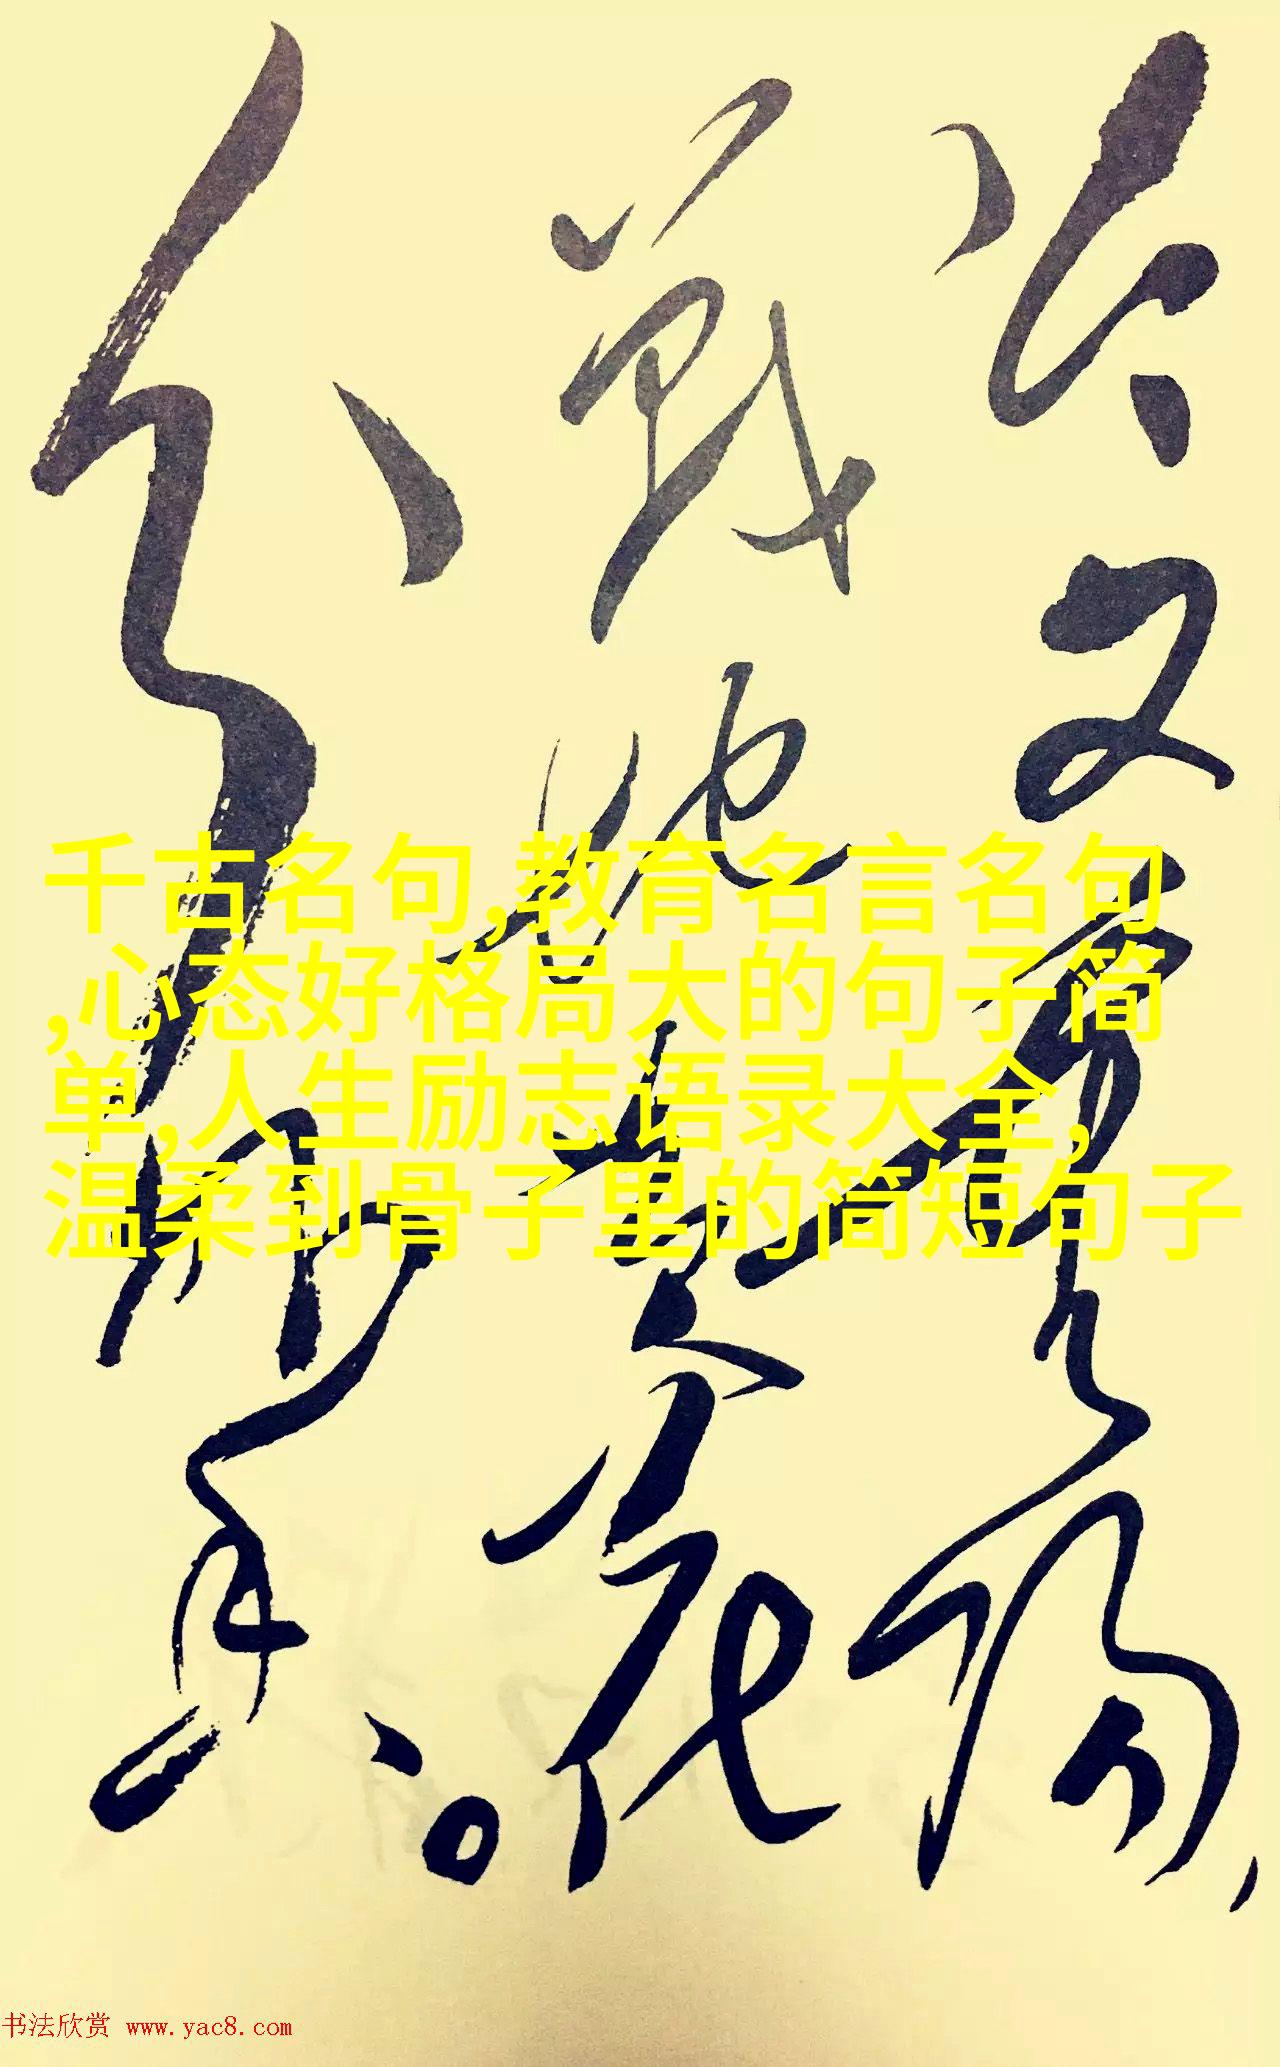 今又重陽，
戰地黄花
分外香。
千古名句,教育名言名句
,心态好格局大的句子简
单,人生励志语录大全,
温柔到骨子里的简短句子
书法欣赏 www.yac8.com